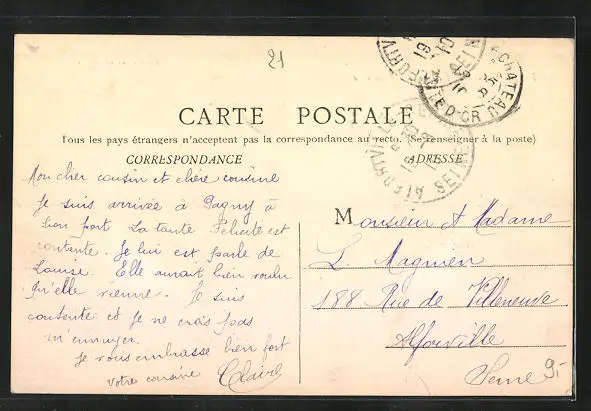 21
CARTE POSTALE
Tous les pays étrangers n'acceptent pas la correspondance au recto. (Se renseigner à la poste)
CORRESPONDANCE
Mon cher cousin et chère cousine
Je suis arrivée à Pagny à
bon port La tante Félicité est
contente. Je lui est parle de
Louise. Elle aurait bien voulu
qu'elle vienne. Je suis
contente et je ne crois pas
m'ennuyer.
Je vous embrasse bien fort
votre cousine Claire
ADRESSE
Monsieur et Madame
L Magnien
188 Rue de Villeneuve
Alforville
Seine
9,-
ALFORTVILLE SEINE
CÔTE D'OR